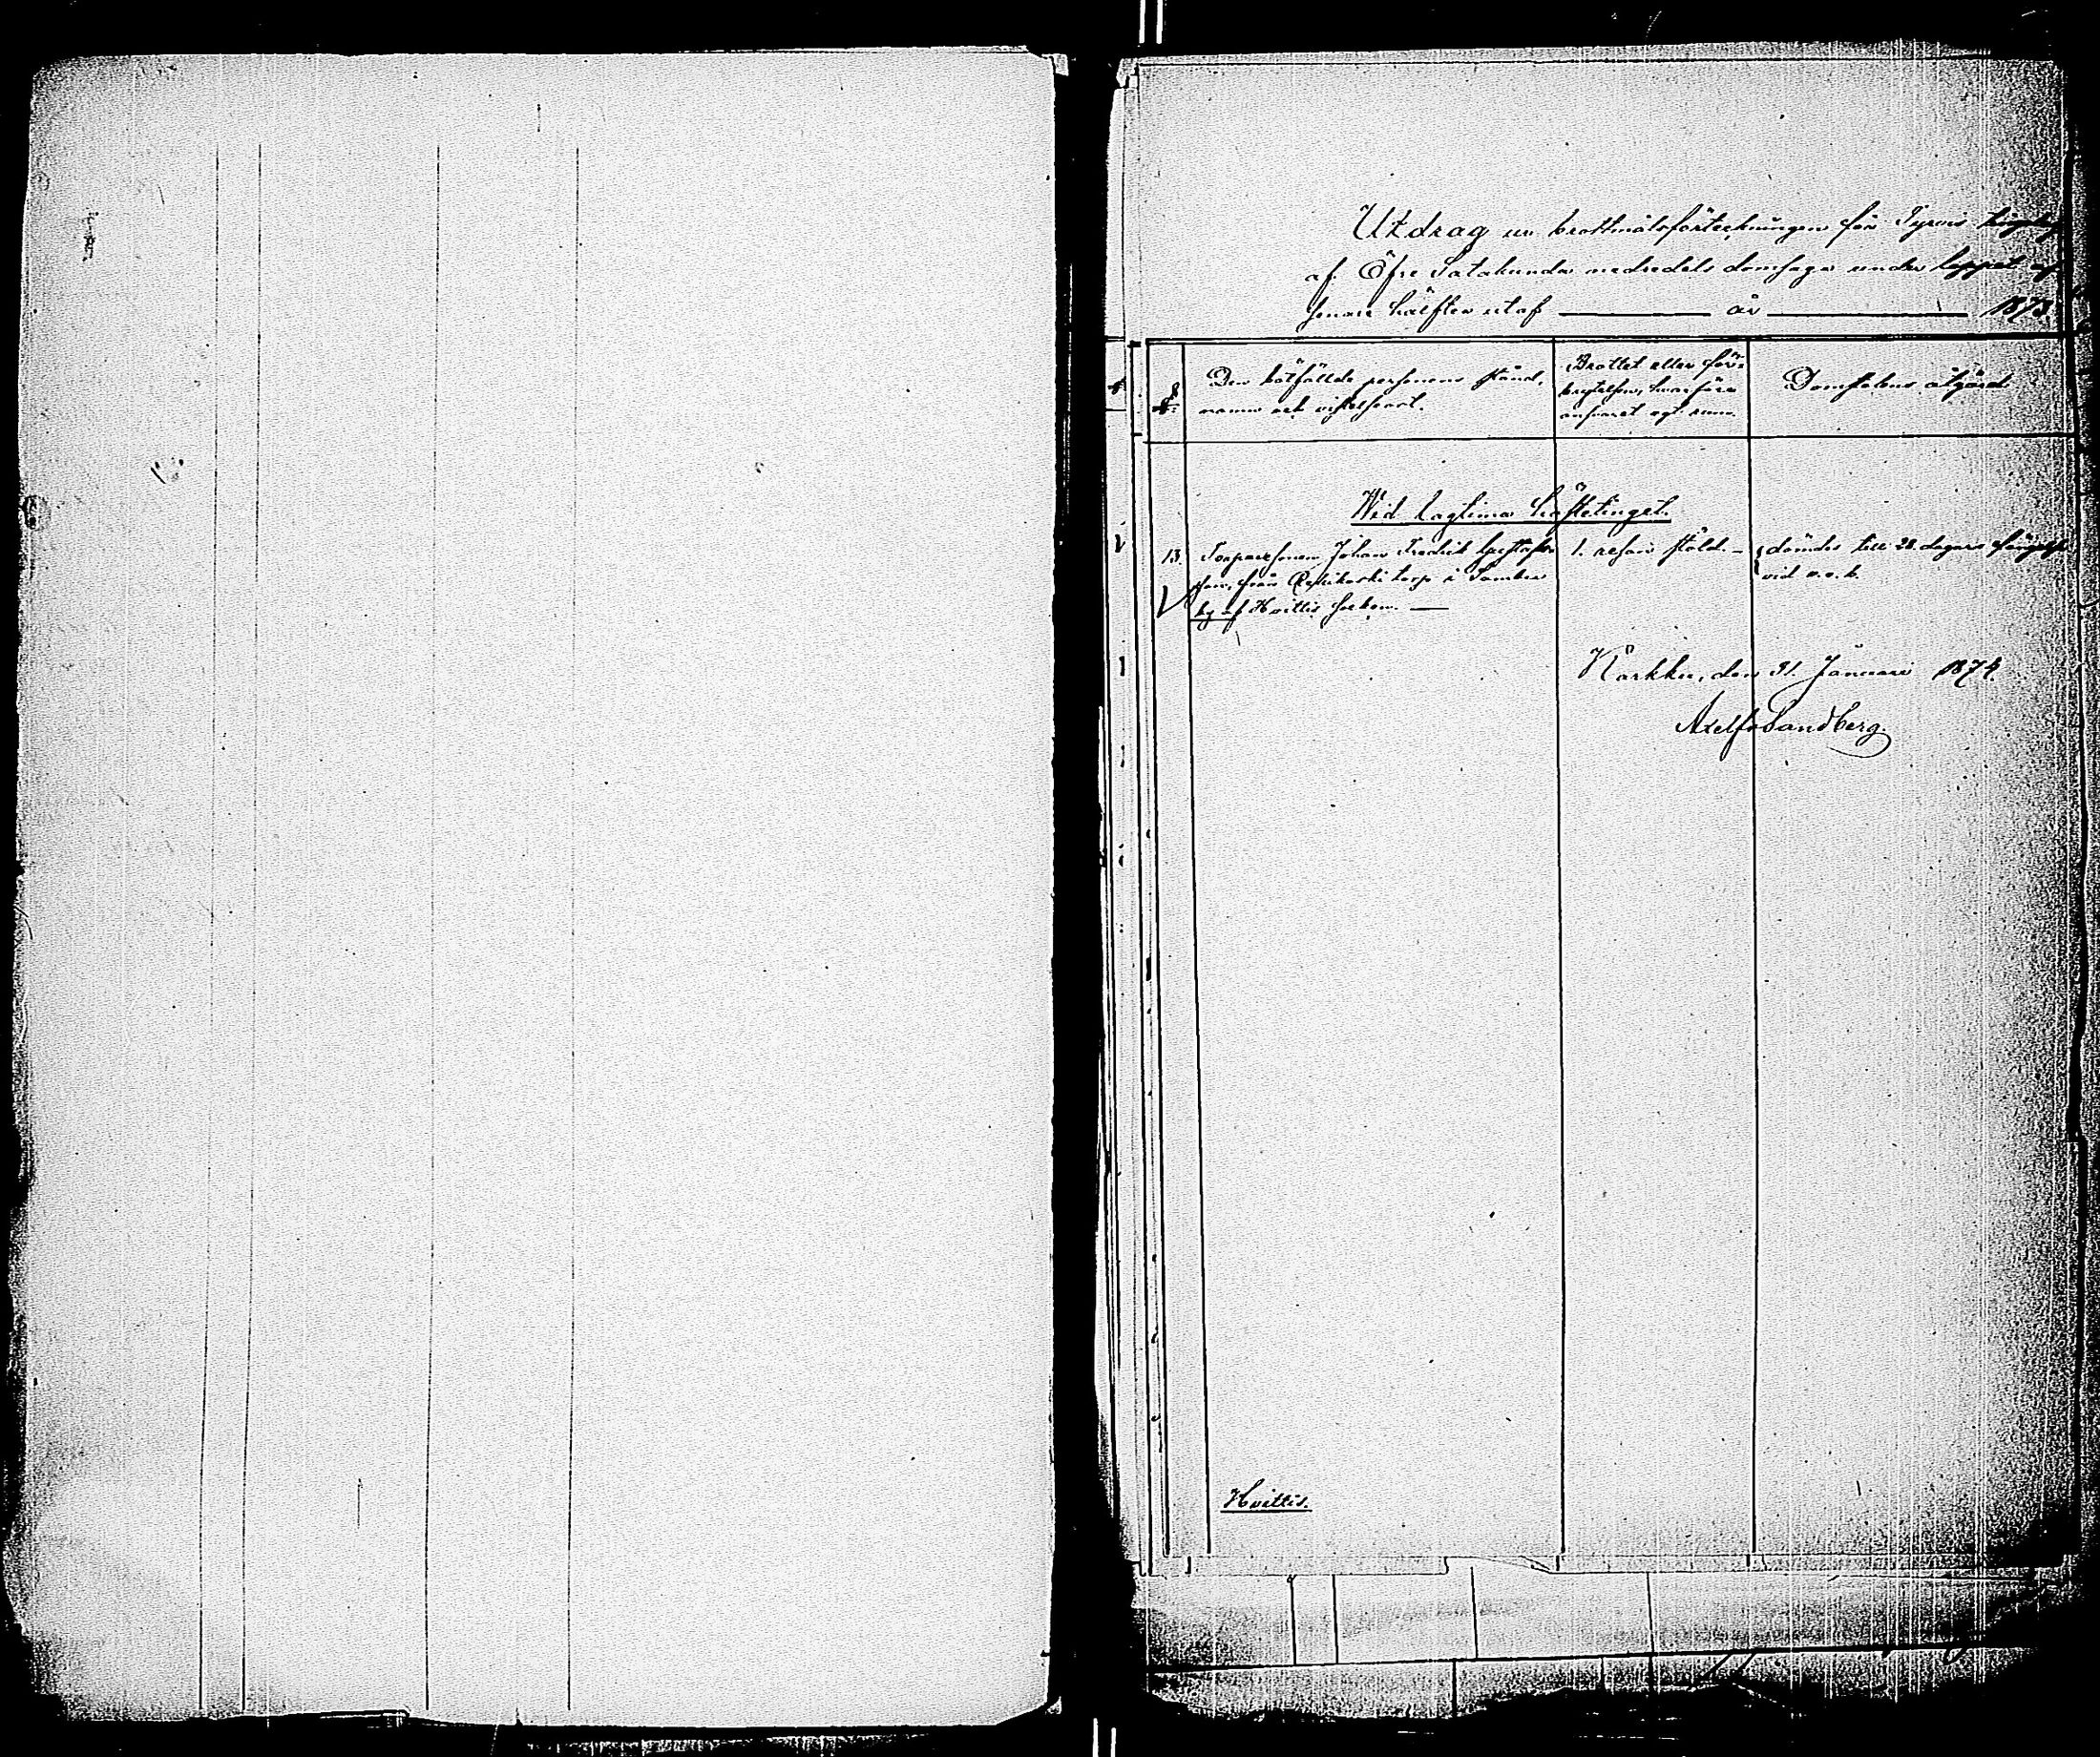 Utdrag ur brottmålsförteckningen för Tyrvis tingslag
af Öfre Satakunda nedredels domsaga under loppet af
senare hälften utaf — år — 1873.
N:o
Den bötfällde personens stånd,
namn och vistelseort.
Brottet eller för-
brytelsen, hvarföre
ansvaret egt rum.
Domstolens åtgärd.
Wid lagtima hösttinget.
13.
Torparesonen Johan Fredrik Gustafs-
son, från torp i Sambu
by af Hvittis socken. —
1. resan stöld. —
dömdes till 28 dagars fängelse
vid v. o. b.
Karkku, den 31 Januari 1874.
Axel Sandberg.
Hvittis.